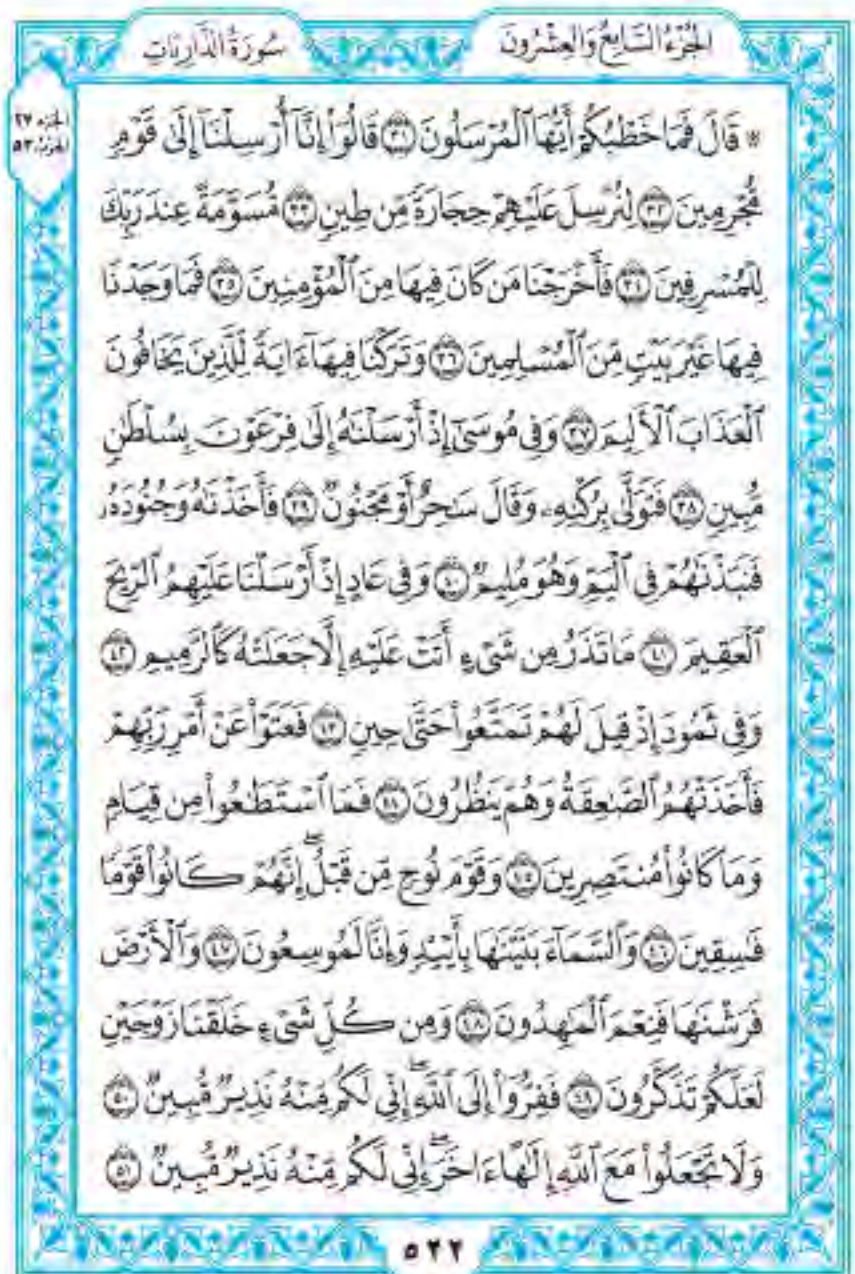 الجُزْءُ السَّابِعُ وَالعِشْرُونَ
سُورَةُ الذَّارِيَاتِ
الجزء ٢٧
الحزب ٥٣
۞ قَالَ فَمَا خَطْبُكُمْ أَيُّهَا ٱلْمُرْسَلُونَ ٣١ قَالُوٓاْ إِنَّآ أُرْسِلْنَآ إِلَىٰ قَوْمٍ
مُّجْرِمِينَ ٣٢ لِنُرْسِلَ عَلَيْهِمْ حِجَارَةً مِّن طِينٍ ٣٣ مُّسَوَّمَةً عِندَ رَبِّكَ
لِلْمُسْرِفِينَ ٣٤ فَأَخْرَجْنَا مَن كَانَ فِيهَا مِنَ ٱلْمُؤْمِنِينَ ٣٥ فَمَا وَجَدْنَا
فِيهَا غَيْرَ بَيْتٍ مِّنَ ٱلْمُسْلِمِينَ ٣٦ وَتَرَكْنَا فِيهَآ ءَايَةً لِّلَّذِينَ يَخَافُونَ
ٱلْعَذَابَ ٱلْأَلِيمَ ٣٧ وَفِى مُوسَىٰٓ إِذْ أَرْسَلْنَٰهُ إِلَىٰ فِرْعَوْنَ بِسُلْطَٰنٍ
مُّبِينٍ ٣٨ فَتَوَلَّىٰ بِرُكْنِهِۦ وَقَالَ سَٰحِرٌ أَوْ مَجْنُونٌ ٣٩ فَأَخَذْنَٰهُ وَجُنُودَهُۥ
فَنَبَذْنَٰهُمْ فِى ٱلْيَمِّ وَهُوَ مُلِيمٌ ٤٠ وَفِى عَادٍ إِذْ أَرْسَلْنَا عَلَيْهِمُ ٱلرِّيحَ
ٱلْعَقِيمَ ٤١ مَا تَذَرُ مِن شَىْءٍ أَتَتْ عَلَيْهِ إِلَّا جَعَلَتْهُ كَٱلرَّمِيمِ ٤٢
وَفِى ثَمُودَ إِذْ قِيلَ لَهُمْ تَمَتَّعُواْ حَتَّىٰ حِينٍ ٤٣ فَعَتَوْاْ عَنْ أَمْرِ رَبِّهِمْ
فَأَخَذَتْهُمُ ٱلصَّٰعِقَةُ وَهُمْ يَنظُرُونَ ٤٤ فَمَا ٱسْتَطَٰعُواْ مِن قِيَامٍ
وَمَا كَانُواْ مُنتَصِرِينَ ٤٥ وَقَوْمَ نُوحٍ مِّن قَبْلُ ۖ إِنَّهُمْ كَانُواْ قَوْمًا
فَٰسِقِينَ ٤٦ وَٱلسَّمَآءَ بَنَيْنَٰهَا بِأَيْي۟دٍ وَإِنَّا لَمُوسِعُونَ ٤٧ وَٱلْأَرْضَ
فَرَشْنَٰهَا فَنِعْمَ ٱلْمَٰهِدُونَ ٤٨ وَمِن كُلِّ شَىْءٍ خَلَقْنَا زَوْجَيْنِ
لَعَلَّكُمْ تَذَكَّرُونَ ٤٩ فَفِرُّوٓاْ إِلَى ٱللَّهِ ۖ إِنِّى لَكُم مِّنْهُ نَذِيرٌ مُّبِينٌ ٥٠
وَلَا تَجْعَلُواْ مَعَ ٱللَّهِ إِلَٰهًا ءَاخَرَ ۖ إِنِّى لَكُم مِّنْهُ نَذِيرٌ مُّبِينٌ ٥١
٥٢٢